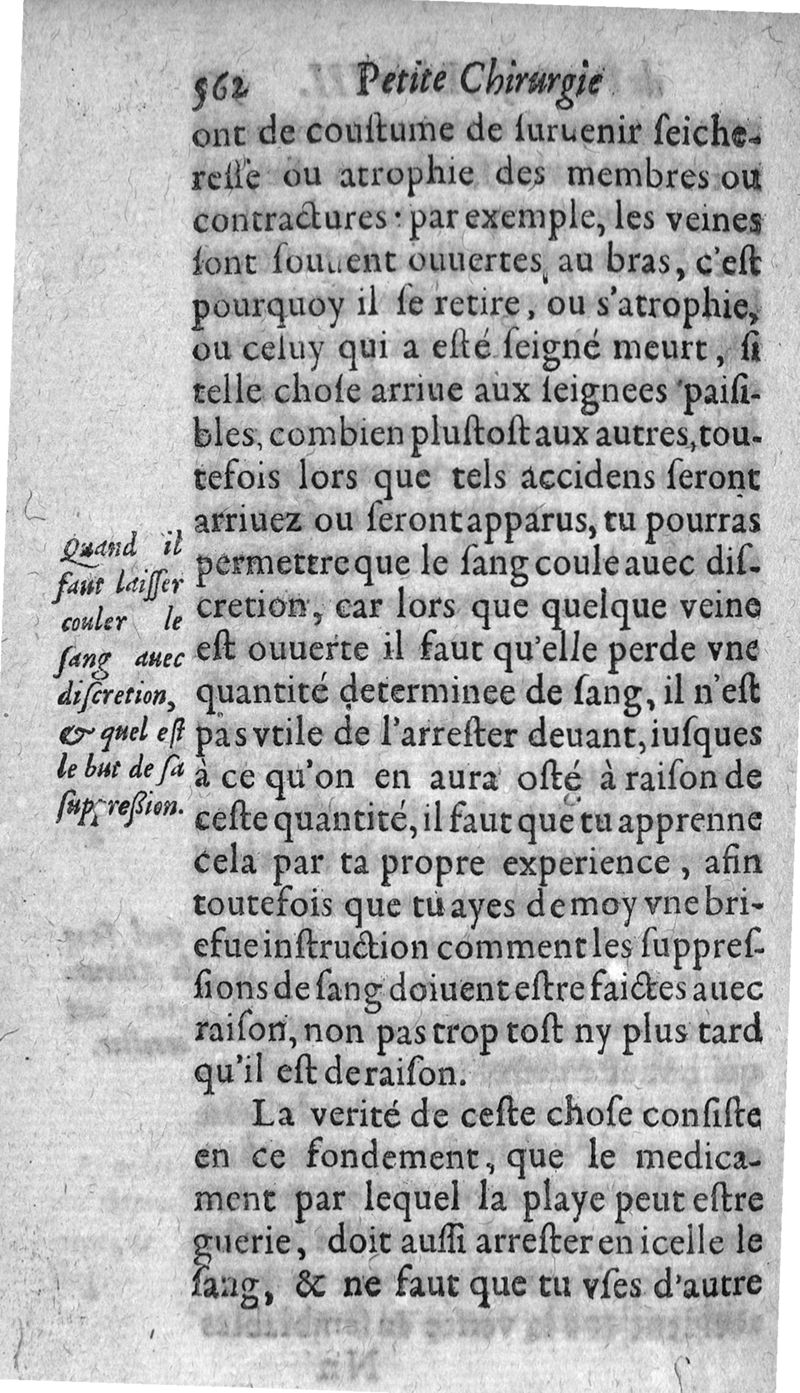 562 Petite Chirurgie
ont de couſtume de ſuruenir ſeiche-
reſſe ou atrophie des membres ou
contractures : par exemple, les veines
ſont ſouuent ouuertes, au bras, c'eſt
pourquoy il ſe retire, ou s'atrophie,
ou celuy qui a eſté ſeigné meurt, ſi
telle choſe arriue aux ſeignees paiſi-
bles, combien pluſtoſt aux autres, tou-
tefois lors que tels accidens ſeront
arriuez ou ſeront apparus, tu pourras
permettre que le ſang coule auec diſ-
cretion, car lors que quelque veine
eſt ouuerte il faut qu'elle perde vne
quantité determinee de ſang, il n'eſt
pas vtile de l'arreſter deuant, iuſques
à ce qu'on en aura oſté à raiſon de
ceſte quantité, il faut que tu apprenne
cela par ta propre experience, afin
toutefois que tu ayes de moy vne bri-
efue inſtruction comment les ſuppreſ-
ſions de ſang doiuent eſtre faictes auec
raiſon, non pas trop toſt ny plus tard
qu'il eſt de raiſon.
La verité de ceſte choſe conſiſte
en ce fondement, que le medica-
ment par lequel la playe peut eſtre
guerie, doit auſſi arreſter en icelle le
ſang, & ne faut que tu vſes d'autre
Quand il
faut laiſſer
couler le
ſang auec
diſcretion,
& quel eſt
le but de ſa
ſuppreßion.